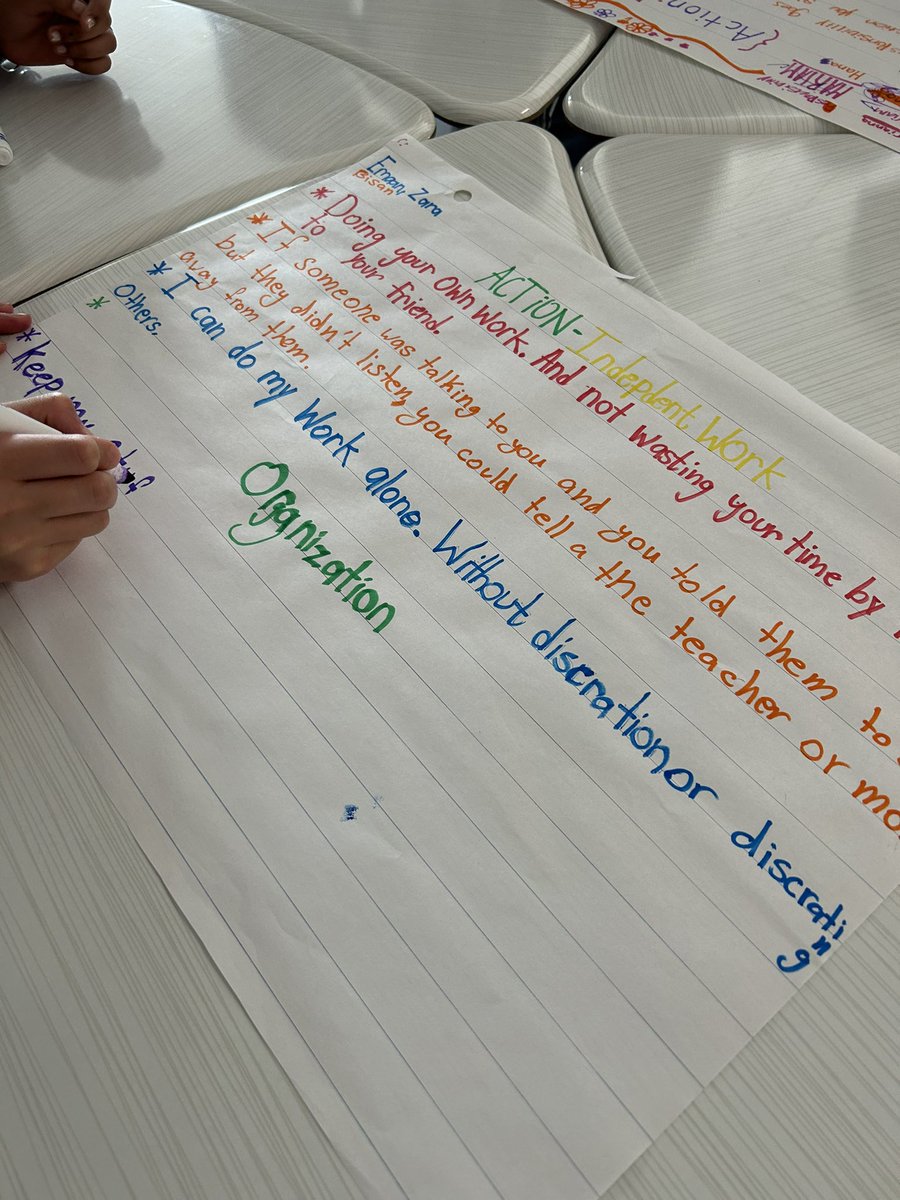 Emaan, Zara
Bisan
ACTiON- Indepdent Work
* Doing your own work. And not wasting your time by
to your friend.
* If someone was talking to you and you told them to
but they didn't listen, you could tell a the teacher or mo
away from them.
* I can do my work alone. Without discration or discrating
Others.
*
Organization
* Keep my
{Action
Hana
MARIAM